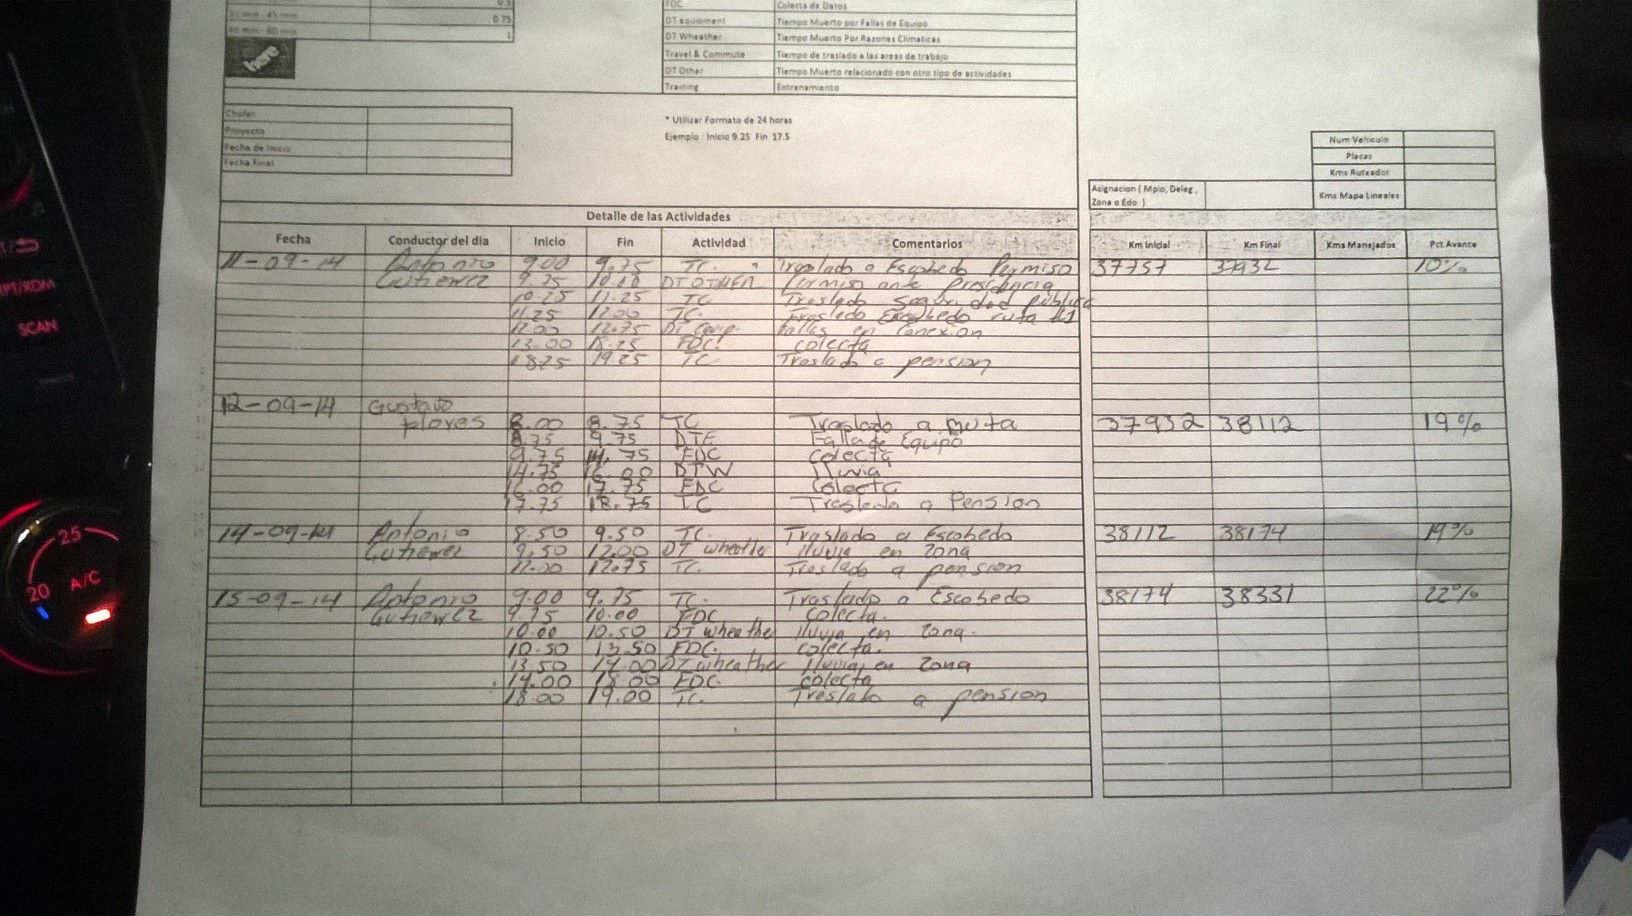 0.5
31 min - 45 min 0.75
46 min - 60 min 1
here
FDC Colecta de Datos
DT equipment Tiempo Muerto por Fallas de Equipo
DT Wheather Tiempo Muerto Por Razones Climaticas
Travel & Commute Tiempo de traslado a las areas de trabajo
DT Other Tiempo Muerto relacionado con otro tipo de actividades
Training Entrenamiento
Chofer
Proyecto
Fecha de Inicio
Fecha Final
* Utilizar Formato de 24 horas
Ejemplo : Inicio 9.25 Fin 17.5
Num Vehiculo
Placas
Kms Ruteador
Kms Mapa Lineales
Asignacion ( Mpio, Deleg ,
Zona o Edo )
Detalle de las Actividades
Fecha Conductor del dia Inicio Fin Actividad Comentarios Km Inicial Km Final Kms Manejados Pct Avance
11-09-14 Antonio 9.00 9.75 TC. Traslado a Escobedo Permiso 37757 37932 10%
Gutierrez 9.75 10.10 DT OTHER Permiso ante Presidencia
10.25 11.25 TC Traslado Seguridad publica
11.25 12.00 TC. Traslado Escobedo ruta #1
12.00 12.75 DT equip. fallas en Conexion
13.00 18.25 FDC. colecta
18.25 19.25 TC. Traslado a pension
12-09-14 Gustavo
flores 8.00 8.75 TC Traslado a Ruta 37932 38112 19%
8.75 9.75 DTE Falla de Equipo
9.75 14.75 FDC Colecta
14.75 16.00 DTW lluvia
16.00 17.75 FDC Colecta
17.75 18.75 TC Traslado a Pension
14-09-14 Antonio 8.50 9.50 TC. Traslado a Escobedo 38112 38174 19%
Gutierrez 9.50 12.00 DT wheather lluvia en zona
12.00 12.75 TC. Traslado a pension
15-09-14 Antonio 9.00 9.75 TC. Traslado a Escobedo 38174 38331 22%
Gutierrez 9.75 10.00 FDC colecta.
10.00 10.50 DT wheather lluvia en zona.
10.50 13.50 FDC. colecta.
13.50 14.00 DT wheather lluvia en zona
14.00 18.00 FDC. colecta
18.00 19.00 TC. Traslado a pension
SCAN
25
20
A/C